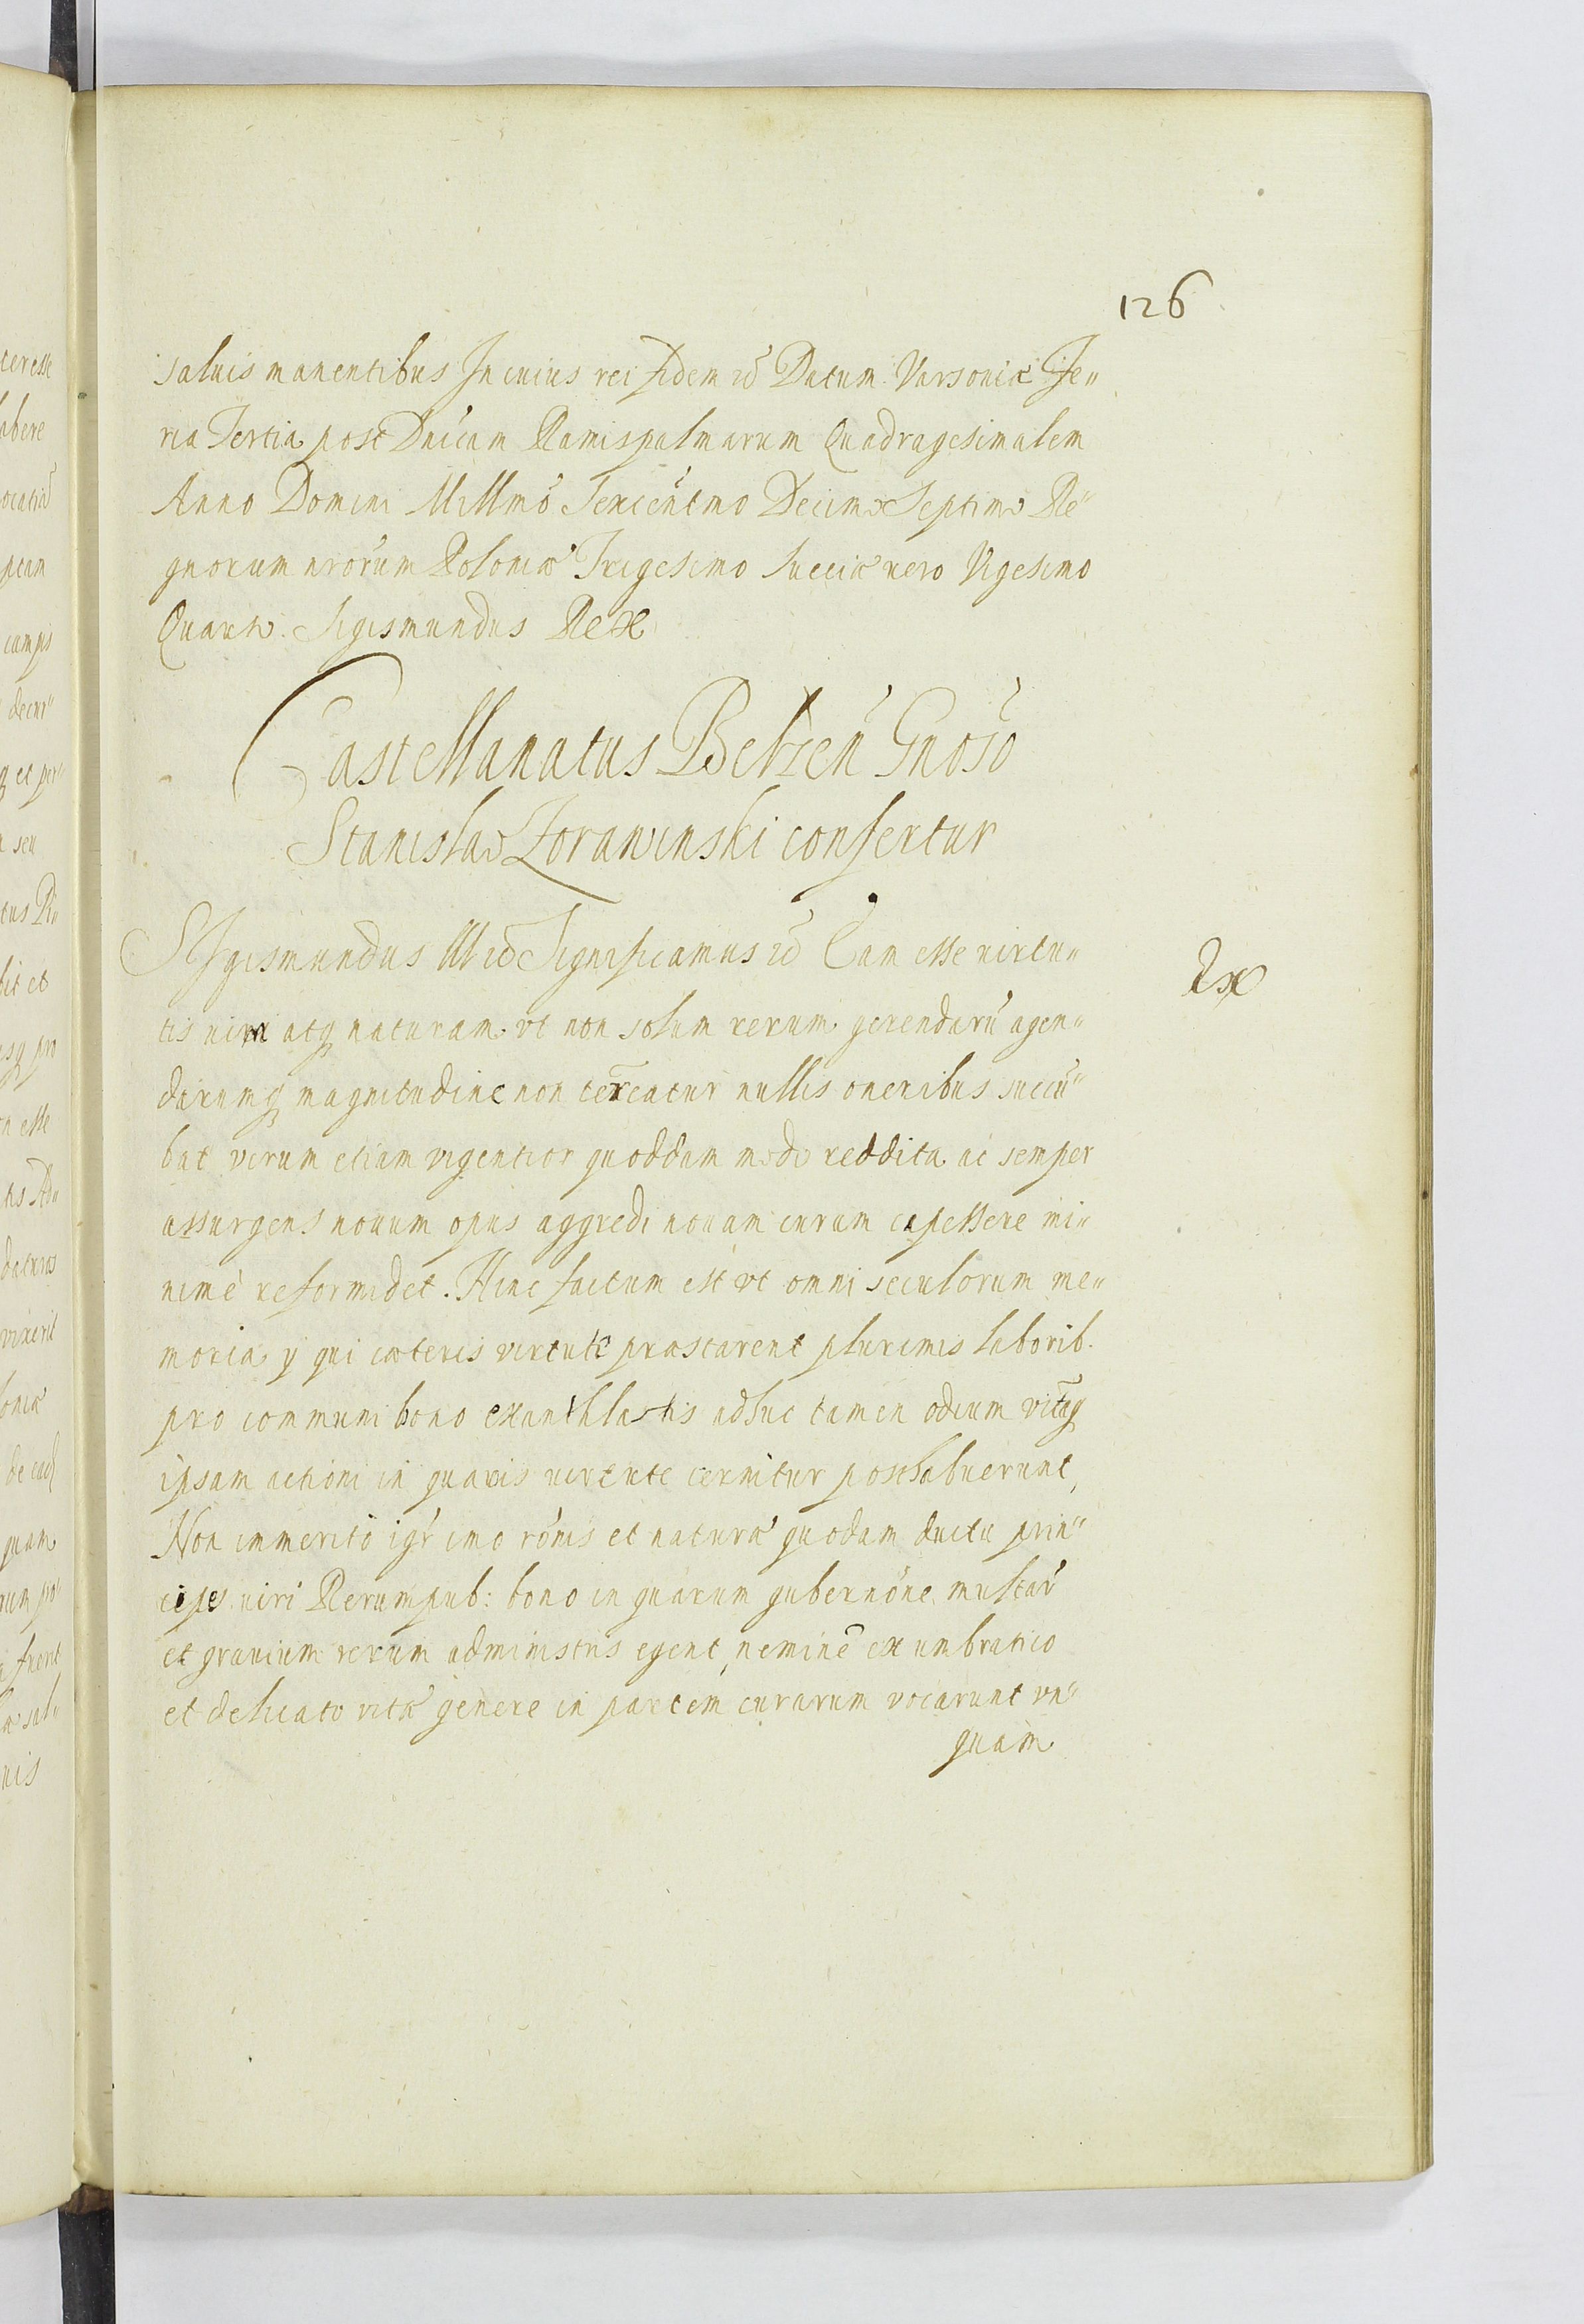 126
saluis manentibus In cuius rei fidem etc Datum Varsoniæ Fe„
ria Tertia post Dnicam Ramispalmarum Quadragesimalem
Anno Domini Millmo Sexcentmo Decimo Septimo Re„
gnorum nrorum Poloniæ Trigesimo Sueciæ uero Vigesimo
Quarto. Sigismundus Rex
Castellanatus Belzen Gnoso
Stanislao Zorawinski confertur
SIgismundus III etc Significamus etc Eam esse uirtu„
tis uim atq naturam vt non solum rerum gerendarū agen„
darumq magnitudine non terreatur nullis oneribus succū„
bat verum etiam vigentior quoddam modo reddita ac semper
assurgens nouum opus aggredi nouam curam capessere mi„
nimè reformidet. Hinc factum est vt omni seculorum me„
moria y qui cæteris virtute præstarent plurimis laborib.
pro communi bono exanthlastis adhuc tamen odium vitāq
ipsam actioni in quauis uirtute cernitur posthabuerunt,
Non immerito igr imo ronis et naturæ quodam ductu prin„
cipes uiri Rerumpub: bono in quarum gubernone multar
et grauium rerum administris egent, neminē ex umbratico
et delicato vitæ genere in partem curarum vocarunt vn„
quam